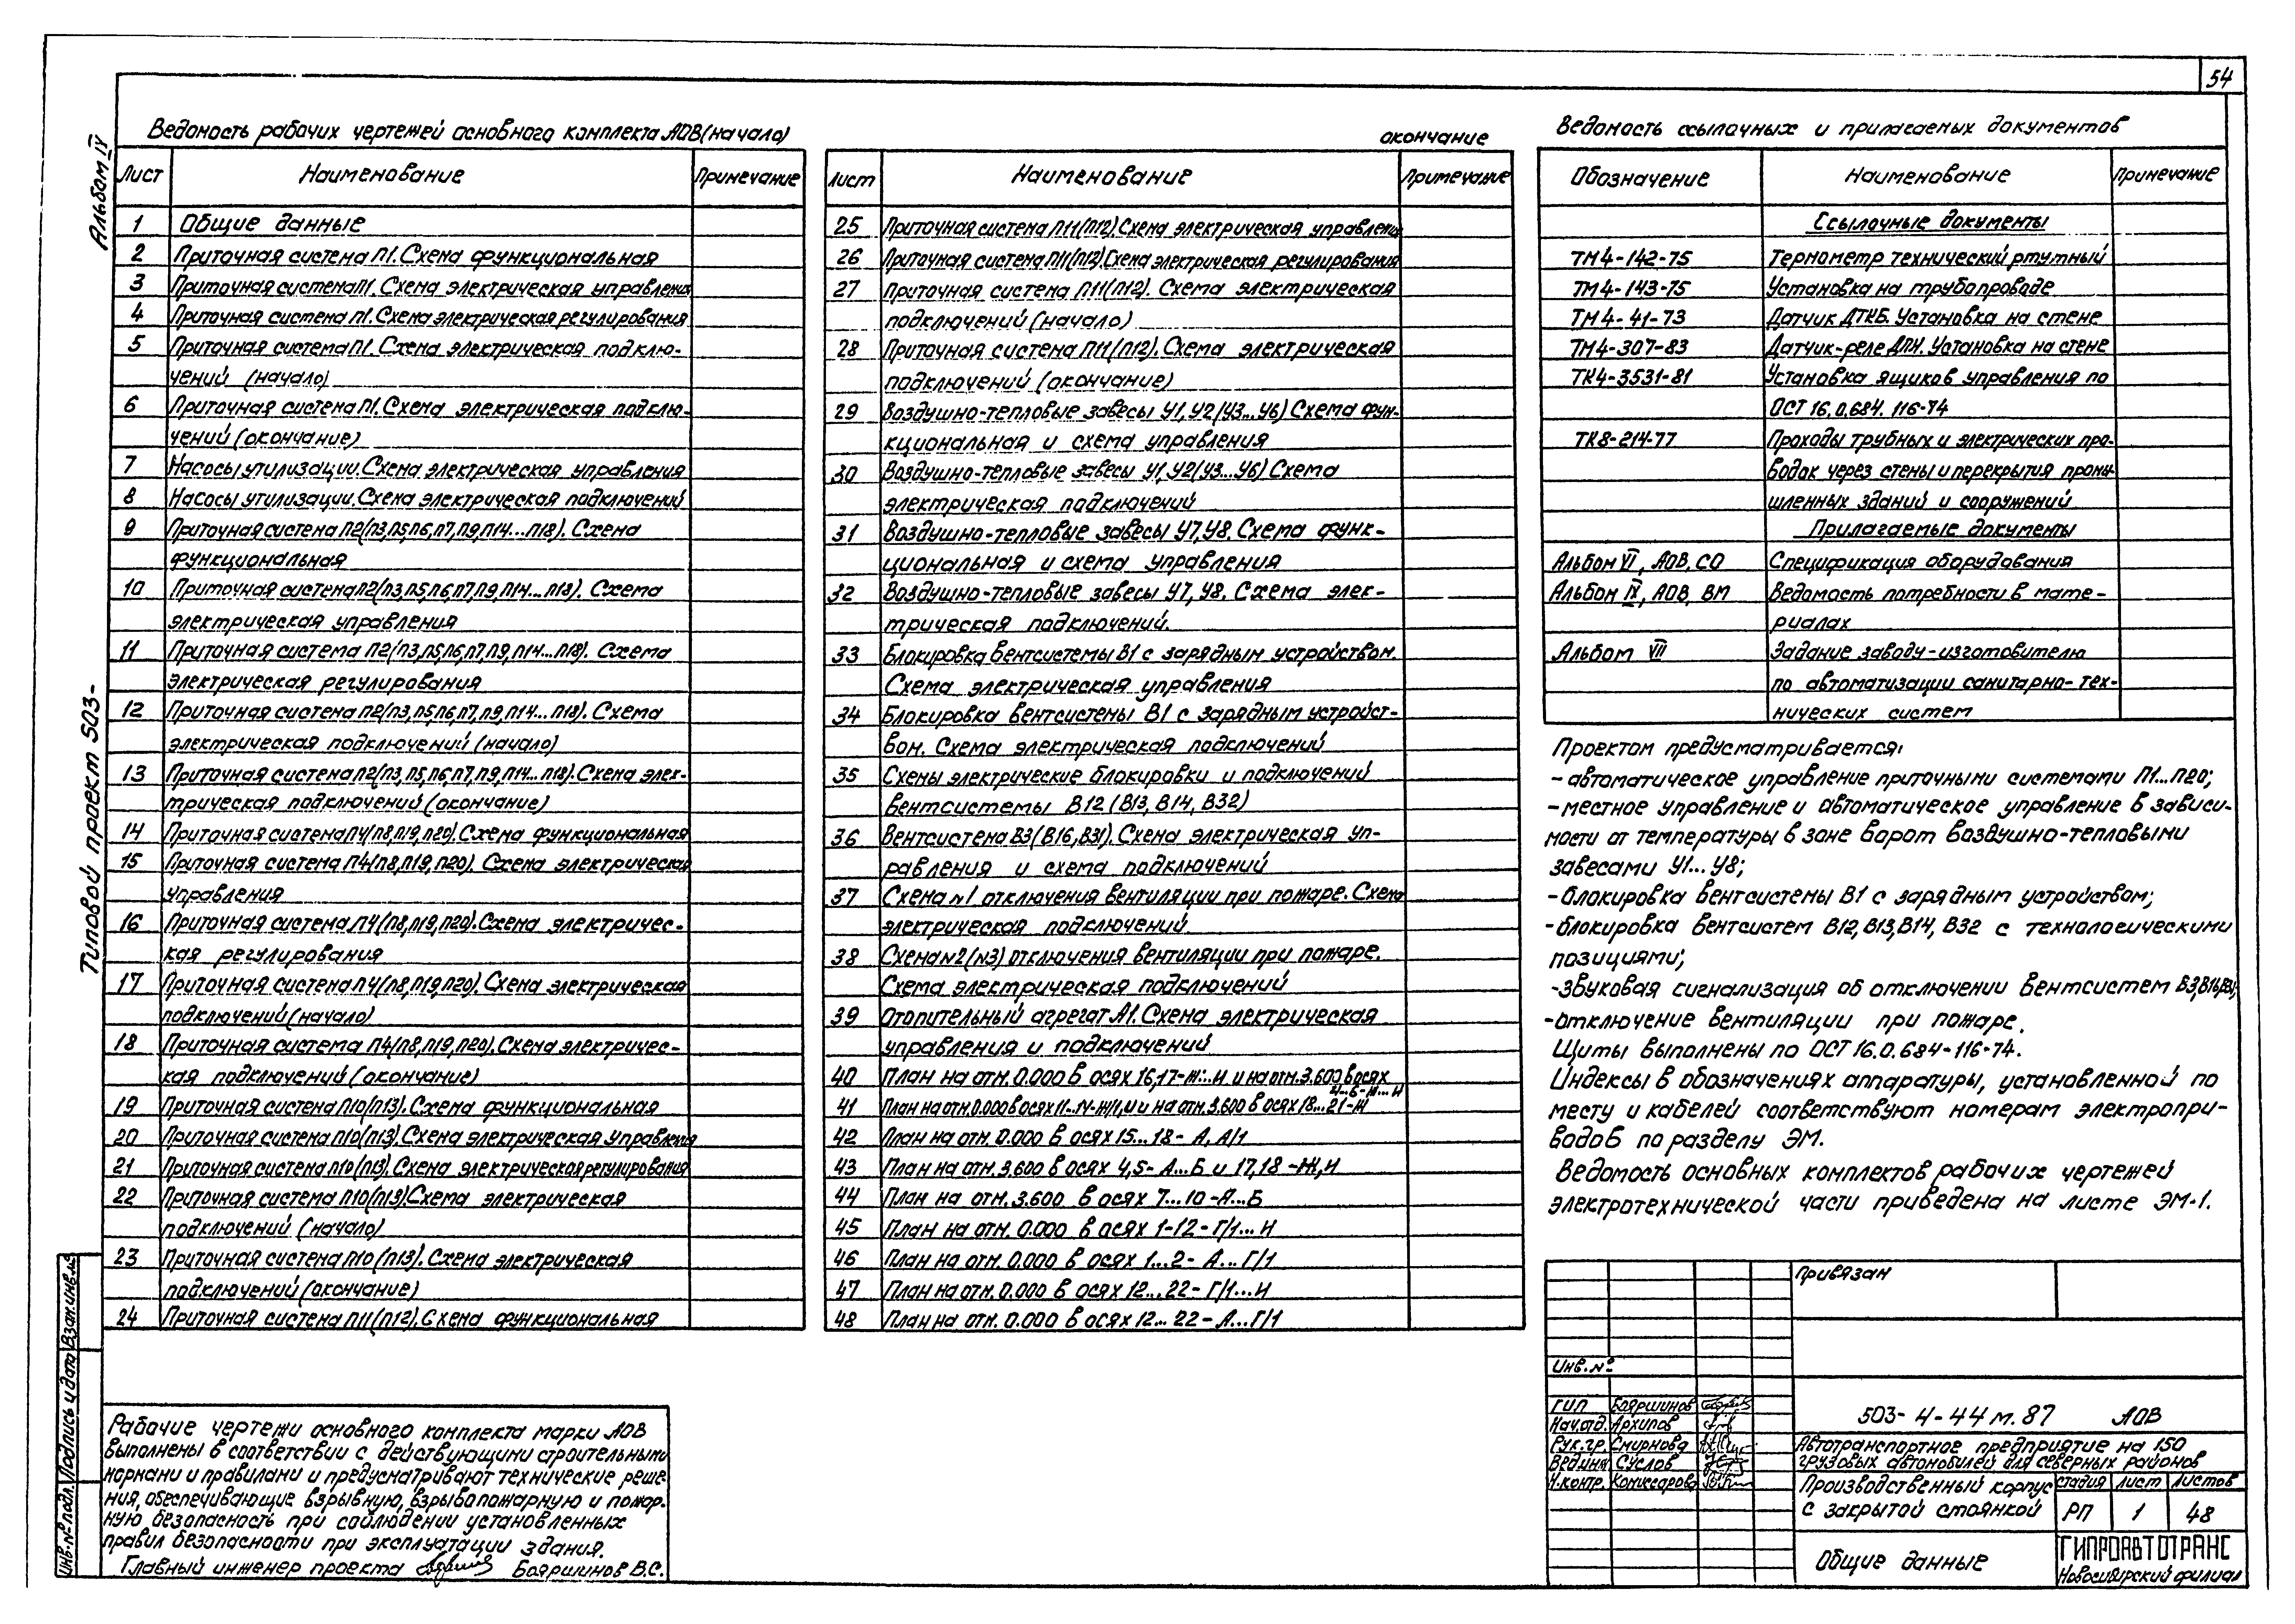 54
Альбом IV
Типовой проект 503-
Ведомость рабочих чертежей основного комплекта АОВ (начало)
Лист Наименование Примечание
1 Общие данные
2 Приточная система П1. Схема функциональная
3 Приточная система П1. Схема электрическая управления
4 Приточная система П1. Схема электрическая регулирования
5 Приточная система П1. Схема электрическая подклю-
чений (начало)
6 Приточная система П1. Схема электрическая подклю-
чений (окончание)
7 Насосы утилизации. Схема электрическая управления
8 Насосы утилизации. Схема электрическая подключений
9 Приточная система П2(П3,П5,П6,П7,П9,П14...П18). Схема
функциональная
10 Приточная система П2(П3,П5,П6,П7,П9,П14...П18). Схема
электрическая управления
11 Приточная система П2(П3,П5,П6,П7,П9,П14...П18). Схема
электрическая регулирования
12 Приточная система П2(П3,П5,П6,П7,П9,П14...П18). Схема
электрическая подключений (начало)
13 Приточная система П2(П3,П5,П6,П7,П9,П14...П18). Схема элек-
трическая подключений (окончание)
14 Приточная система П4(П8,П19,П20). Схема функциональная
15 Приточная система П4(П8,П19,П20). Схема электрическая
управления
16 Приточная система П4(П8,П19,П20). Схема электричес-
кая регулирования
17 Приточная система П4(П8,П19,П20). Схема электрическая
подключений (начало)
18 Приточная система П4(П8,П19,П20). Схема электричес-
кая подключений (окончание)
19 Приточная система П10(П13). Схема функциональная
20 Приточная система П10(П13). Схема электрическая управления
21 Приточная система П10(П13). Схема электрическая регулирования
22 Приточная система П10(П13). Схема электрическая
подключений (начало)
23 Приточная система П10(П13). Схема электрическая
подключений (окончание)
24 Приточная система П11(П12). Схема функциональная
окончание
Лист Наименование Примечание
25 Приточная система П11(П12). Схема электрическая управлени
26 Приточная система П11(П12). Схема электрическая регулирования
27 Приточная система П11(П12). Схема электрическая
подключений (начало)
28 Приточная система П11(П12). Схема электрическая
подключений (окончание)
29 Воздушно-тепловые завесы У1,У2(У3...У6) Схема фун-
кциональная и схема управления
30 Воздушно-тепловые завесы У1,У2(У3...У6) Схема
электрическая подключений
31 Воздушно-тепловые завесы У7,У8. Схема функ-
циональная и схема управления
32 Воздушно-тепловые завесы У7,У8. Схема элек-
трическая подключений.
33 Блокировка вентсистемы В1 с зарядным устройством.
Схема электрическая управления
34 Блокировка вентсистемы В1 с зарядным устройст-
вом. Схема электрическая подключений
35 Схемы электрические блокировки и подключений
вентсистемы В12 (В13, В14, В32)
36 Вентсистема В3(В16,В31). Схема электрическая уп-
равления и схема подключений
37 Схема №1 отключения вентиляции при пожаре. Схема
электрическая подключений
38 Схема №2 (№3) отключения вентиляции при пожаре.
Схема электрическая подключений
39 Отопительный агрегат А1. Схема электрическая
управления и подключений
40 План на отм. 0.000 в осях 16,17-Ж...И и на отм. 3.600 в осях
4...6-Ж...И
41 План на отм. 0.000 в осях 11...14-Ж/1,И и на отм. 3.600 в осях 18...21-Ж
42 План на отм. 0.000 в осях 15...18-А, А/1
43 План на отм. 3.600 в осях 4,5-А...Б и 17,18-Ж,И
44 План на отм. 3.600 в осях 7...10-А...Б
45 План на отм. 0.000 в осях 1-12-Г/1...И
46 План на отм. 0.000 в осях 1...2-А...Г/1
47 План на отм. 0.000 в осях 12...22-Г/1...И
48 План на отм. 0.000 в осях 12...22-А...Г/1
Ведомость ссылочных и прилагаемых документов
Обозначение Наименование Примечание
Ссылочные документы
ТМ4-142-75 Термометр технический ртутный
ТМ4-143-75 Установка на трубопроводе
ТМ4-41-73 Датчик ДТКБ. Установка на стене
ТМ4-307-83 Датчик-реле ДПН. Установка на стене
ТК4-3531-81 Установка ящиков управления по
ОСТ 16.0.684.116-74
ТК8-214-77 Проходы трубных и электрических про-
водок через стены и перекрытия промы-
шленных зданий и сооружений
Прилагаемые документы
Альбом VI, АОВ, СО Спецификация оборудования
Альбом IX, АОВ, ВМ Ведомость потребности в мате-
риалах
Альбом VII Задание заводу-изготовителю
по автоматизации санитарно-тех-
нических систем
Проектом предусматривается:
- автоматическое управление приточными системами П1...П20;
- местное управление и автоматическое управление в зависи-
мости от температуры в зоне ворот воздушно-тепловыми
завесами У1...У8;
- блокировка вентсистемы В1 с зарядным устройством;
- блокировка вентсистем В12,В13,В14, В32 с технологическими
позициями;
- звуковая сигнализация об отключении вентсистем В3,В16,В31;
- отключение вентиляции при пожаре.
Щиты выполнены по ОСТ 16.0.684-116-74.
Индексы в обозначениях аппаратуры, установленной по
месту и кабелей соответствуют номерам электропри-
водов по разделу ЭМ.
Ведомость основных комплектов рабочих чертежей
электротехнической части приведена на листе ЭМ-1.
Рабочие чертежи основного комплекта марки АОВ
выполнены в соответствии с действующими строительными
нормами и правилами и предусматривают технические реше-
ния, обеспечивающие взрывную, взрывопожарную и пожар-
ную безопасность при соблюдении установленных
правил безопасности при эксплуатации здания.
Главный инженер проекта Бояршинов В.С.
Инв.№ подл. Подпись и дата Взам.инв.№
Привязан
Инв.№
ГИП Бояршинов
Нач.отд. Архипов
Рук.гр. Смирнова
Вед.инж Суслов
Н.контр. Комиссарова
503-4-44 м.87 АОВ
Автотранспортное предприятие на 150
грузовых автомобилей для северных районов
Производственный корпус
с закрытой стоянкой
стадия лист листов
РП 1 48
Общие данные
ГИПРОАВТОТРАНС
Новосибирский филиал